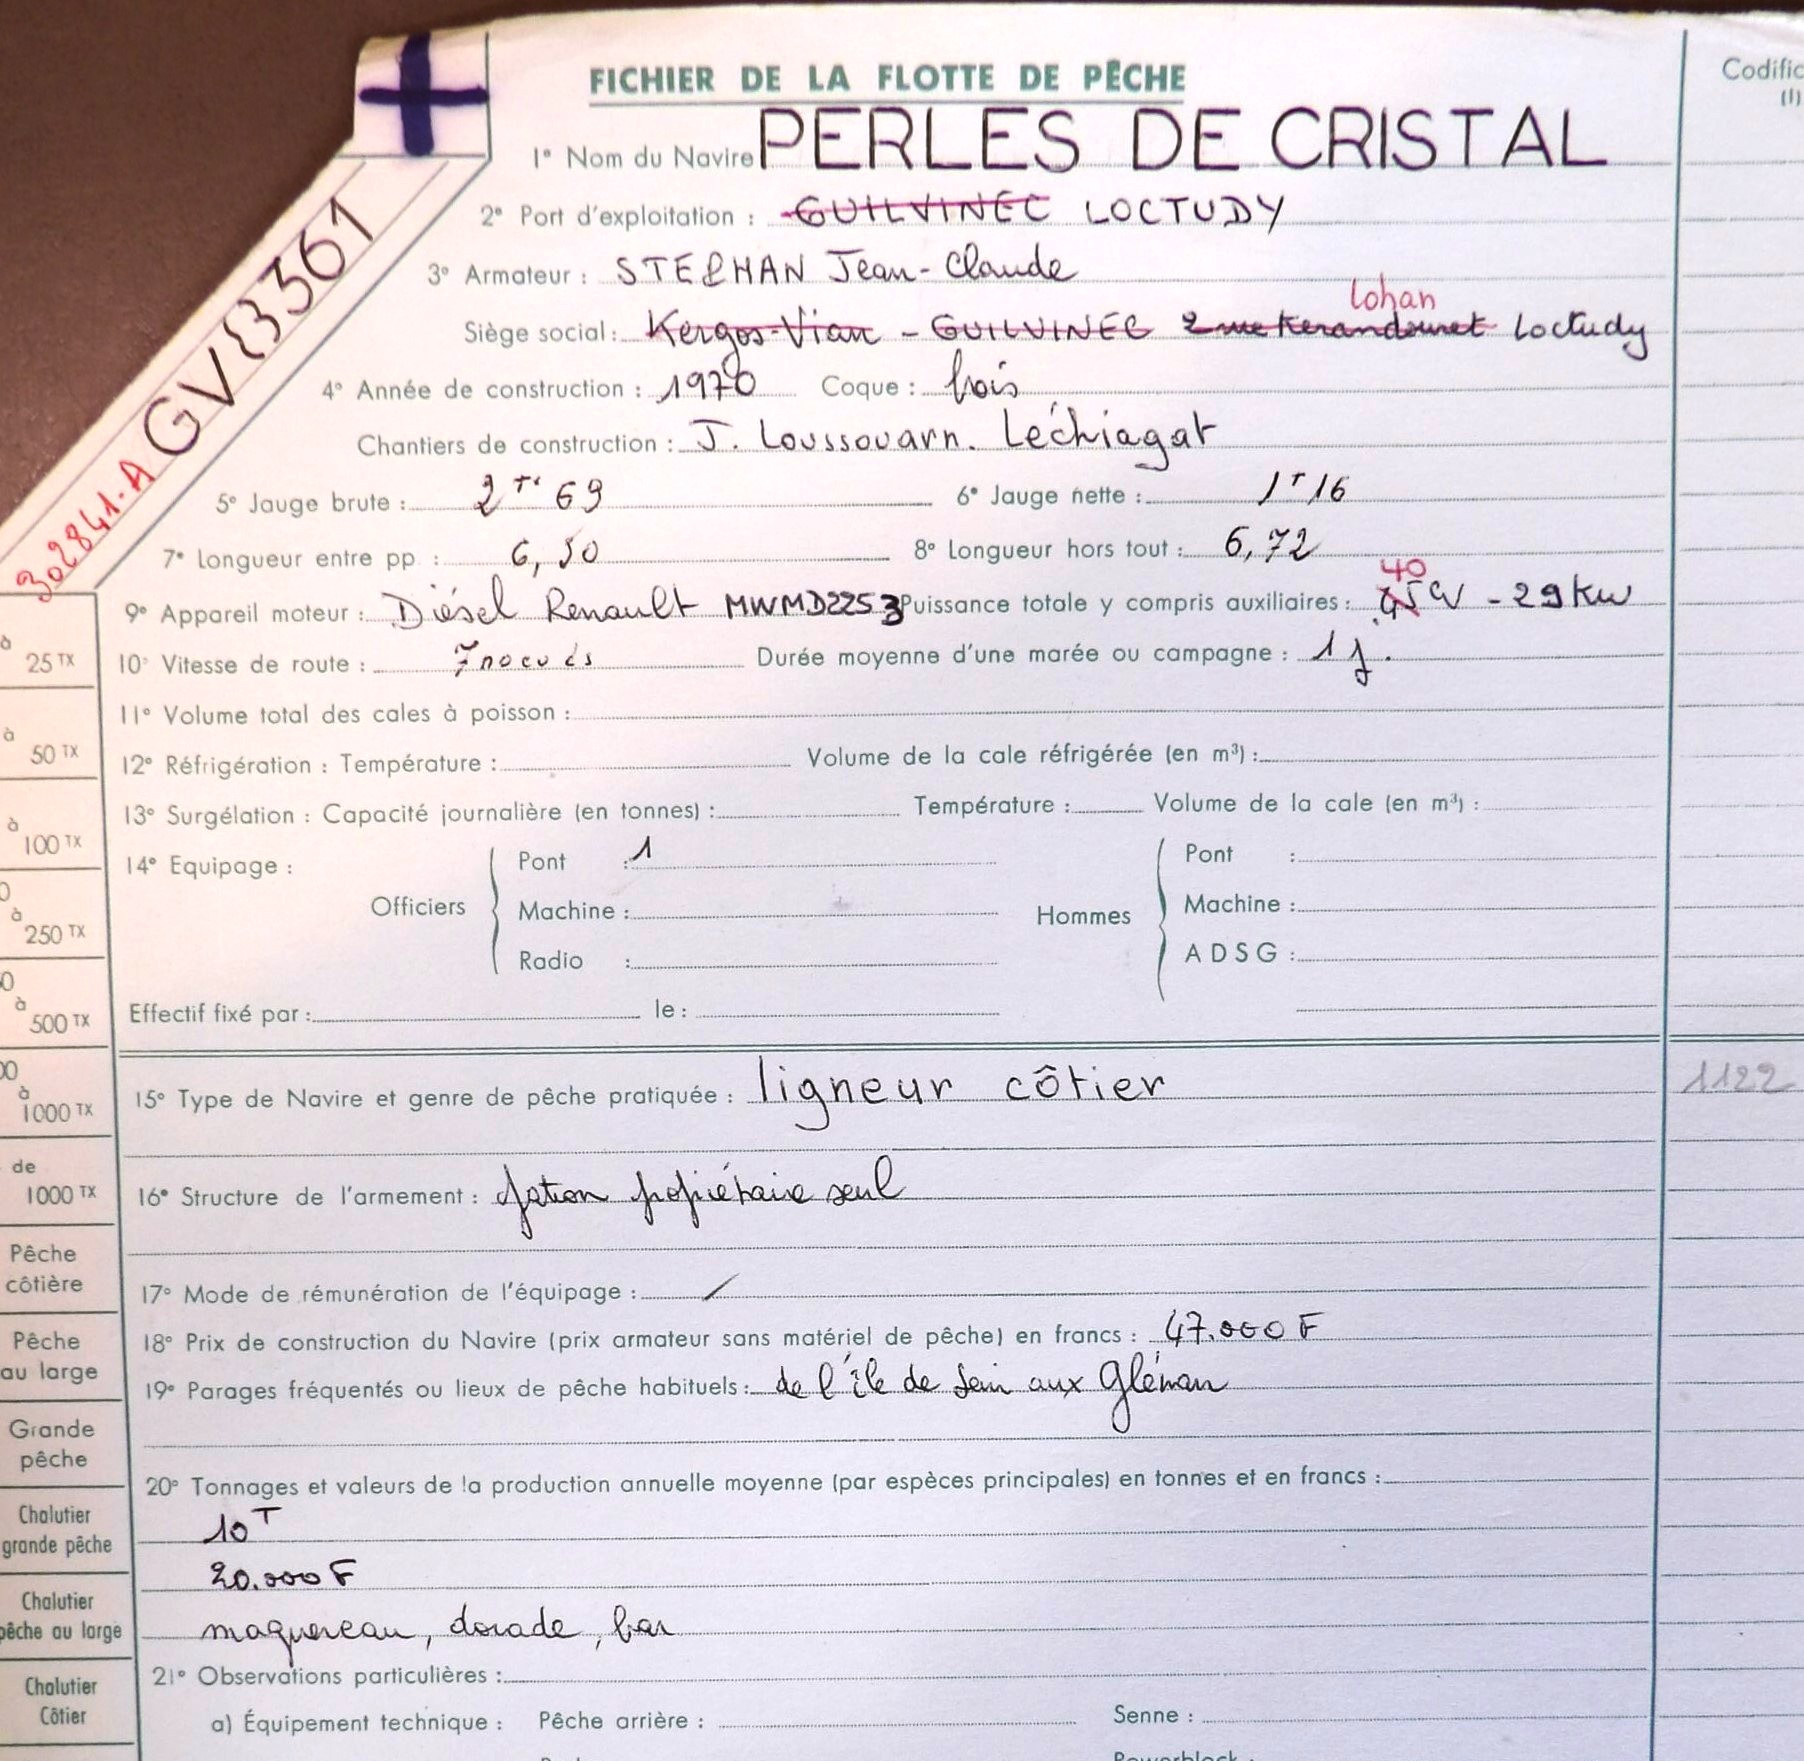 FICHIER DE LA FLOTTE DE PÊCHE
Codific
(1)
1° Nom du Navire PERLES DE CRISTAL
GV 333361
302841.A
2° Port d'exploitation : GUILVINEC LOCTUDY
3° Armateur : STEPHAN Jean-Claude
Lohan
Siège social : Kergos-Vian - GUILVINEC 2 rue Kerandouret Loctudy
4° Année de construction : 1970 Coque : bois
Chantiers de construction : J. Loussouarn. Léchiagat
5° Jauge brute : 2 Tx 69 6° Jauge nette : 1T16
7° Longueur entre pp : 6,50 8° Longueur hors tout : 6,72
40
9° Appareil moteur : Diésel Renault MWMD2253 Puissance totale y compris auxiliaires : 45 CV - 29 KW
10° Vitesse de route : 7 noeuds Durée moyenne d'une marée ou campagne : 1 j.
11° Volume total des cales à poisson :
12° Réfrigération : Température : Volume de la cale réfrigérée (en m³) :
13° Surgélation : Capacité journalière (en tonnes) : Température : Volume de la cale (en m³) :
14° Equipage :
Officiers
Pont : 1
Machine :
Radio :
Hommes
Pont :
Machine :
A D S G :
Effectif fixé par : le :
15° Type de Navire et genre de pêche pratiquée : ligneur côtier
1122
16° Structure de l'armement : patron propriétaire seul
17° Mode de rémunération de l'équipage : /
18° Prix de construction du Navire (prix armateur sans matériel de pêche) en francs : 47.000 F
19° Parages fréquentés ou lieux de pêche habituels : de l'île de Sein aux Glénan
20° Tonnages et valeurs de la production annuelle moyenne (par espèces principales) en tonnes et en francs :
10T
20.000 F
maquereau, dorade, bar
21° Observations particulières :
a) Équipement technique : Pêche arrière : Senne :
Powerblock :
à
25 TX
à
50 TX
à
100 TX
0
à
250 TX
0
à
500 TX
00
à
1000 TX
de
1000 TX
Pêche
côtière
Pêche
au large
Grande
pêche
Chalutier
grande pêche
Chalutier
pêche au large
Chalutier
Côtier